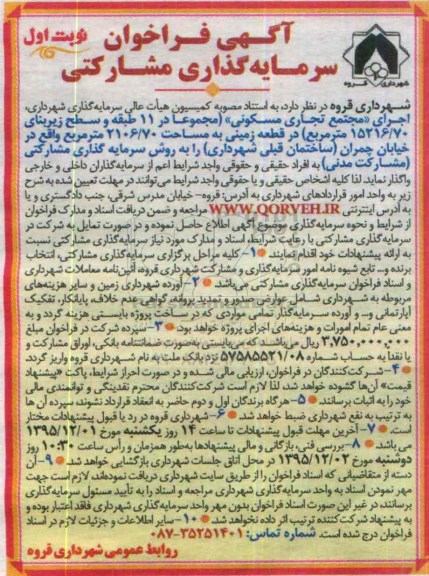 آگهی فراخوان
نوبت اول
سرمایه‌گذاری مشارکتی
شهرداری قروه
شهرداری قروه در نظر دارد، به استناد مصوبه کمیسیون هیأت عالی سرمایه‌گذاری شهرداری،
اجرای «مجتمع تجاری مسکونی» (مجموعا در ۱۱ طبقه و سطح زیربنای
۱۵۲۱۶/۷۰ مترمربع) در قطعه زمینی به مساحت ۲۱۰۶/۷۰ مترمربع واقع در
خیابان چمران (ساختمان قبلی شهرداری) را به روش سرمایه گذاری مشارکتی
(مشارکت مدنی) به افراد حقیقی و حقوقی واجد شرایط اعم از سرمایه‌گذاران داخلی و خارجی
واگذار نماید. لذا کلیه اشخاص حقیقی و یا حقوقی واجد شرایط می‌توانند در مهلت تعیین شده به شرح
زیر به واحد امور قراردادهای شهرداری به آدرس: قروه- خیابان مدرس شرقی، جنب دادگستری و یا
به آدرس اینترنتی WWW.QORVEH.IR مراجعه و ضمن دریافت اسناد و مدارک فراخوان
از شرایط و نحوه سرمایه‌گذاری موضوع آگهی اطلاع حاصل نموده و در صورت تمایل به شرکت در
سرمایه‌گذاری مشارکتی با رعایت شرایط، اسناد و مدارک مورد نیاز سرمایه‌گذاری مشارکتی نسبت
به ارائه پیشنهادات خود اقدام نمایند. ۱- کلیه مراحل برگزاری سرمایه‌گذاری مشارکتی، انتخاب
برنده و... تابع شیوه نامه امور سرمایه‌گذاری و مشارکت شهرداری قروه، آئین‌نامه معاملات شهرداری
و اسناد فراخوان سرمایه‌گذاری مشارکتی می‌باشد. ۲- آورده شهرداری زمین و سایر هزینه‌های
مربوطه به شهرداری شامل عوارض صدور و تمدید پروانه، گواهی عدم خلاف، پایانکار، تفکیک
آپارتمانی و... و آورده سرمایه‌گذار تمامی مواردی که در ساخت پروژه بایستی هزینه گردد و به
معنی عام تمام امورات و هزینه‌های اجرای پروژه خواهد بود. ۳- سپرده شرکت در فراخوان مبلغ
۲,۷۵۰,۰۰۰,۰۰۰ می‌باشد که می‌بایستی به‌صورت ضمانتنامه بانکی، اوراق مشارکت و
یا نقدا به حساب شماره ۵۷۵۸۵۵۲۱/۰۸ نزد بانک ملت به نام شهرداری قروه واریز گردد.
۴- شرکت‌کنندگان در فراخوان، ارزیابی مالی شده و در صورت احراز شرایط، پاکت «پیشنهاد
قیمت» آن‌ها گشوده خواهد شد، لذا لازم است شرکت‌کنندگان محترم نقدینگی و توانمندی مالی
خود را به اثبات برسانند. ۵- هرگاه برندگان اول و دوم حاضر به انعقاد قرارداد نشوند، سپرده آن ها
به ترتیب به نفع شهرداری ضبط خواهد شد. ۶- شهرداری قروه در رد یا قبول پیشنهادات مختار
است. ۷- آخرین مهلت قبول پیشنهادات تا ساعت ۱۴ روز یکشنبه مورخ ۱۳۹۵/۱۲/۰۱
می باشد. ۸- بررسی فنی، بازگانی و مالی پیشنهادها به‌طور همزمان و رأس ساعت ۱۰:۳۰ روز
دوشنبه مورخ ۱۳۹۵/۱۲/۰۲ در محل اتاق جلسات شهرداری بازگشایی خواهد شد. ۹- آن
دسته از متقاضیانی که اسناد فراخوان را از طریق سایت شهرداری دریافت نموده‌اند، لازم است جهت
مهر نمودن اسناد به واحد سرمایه‌گذاری شهرداری مراجعه و اسناد را به تأیید مسئول سرمایه‌گذاری
برسانند در غیر این صورت اسناد فراخوان بدون مهر واحد سرمایه‌گذاری شهرداری فاقد اعتبار بوده و
به پیشنهاد شرکت کننده ترتیب اثر داده نخواهد شد. ۱۰- سایر اطلاعات و جزئیات لازم در اسناد
فراخوان درج شده است. شماره تماس: ۳۵۲۵۱۴۰۱-۰۸۷
روابط عمومی شهرداری قروه